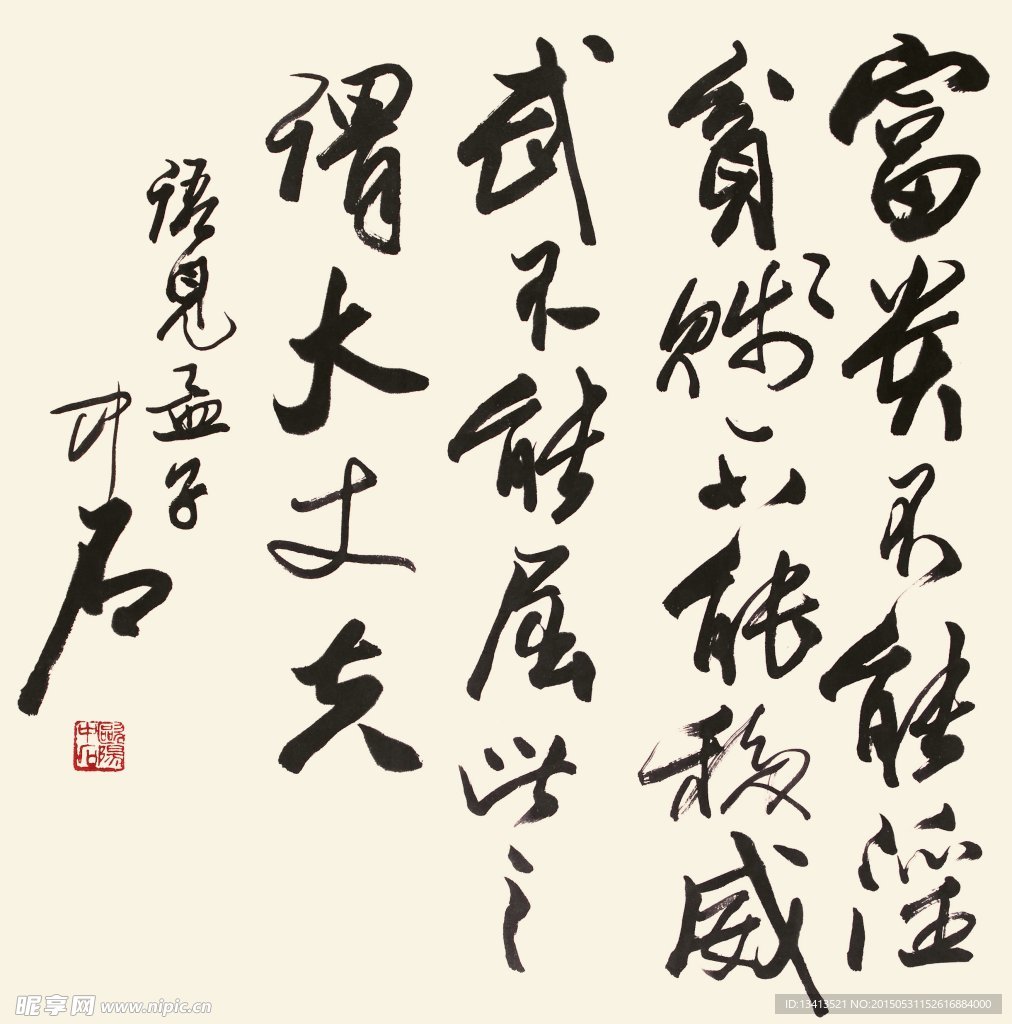 富貴不能淫
貧賤不能移威
武不能屈此之
謂大丈夫
語見孟子
中石
歐陽中石
昵享网 www.nipic.cn
ID:13413521 NO:20150531152616884000